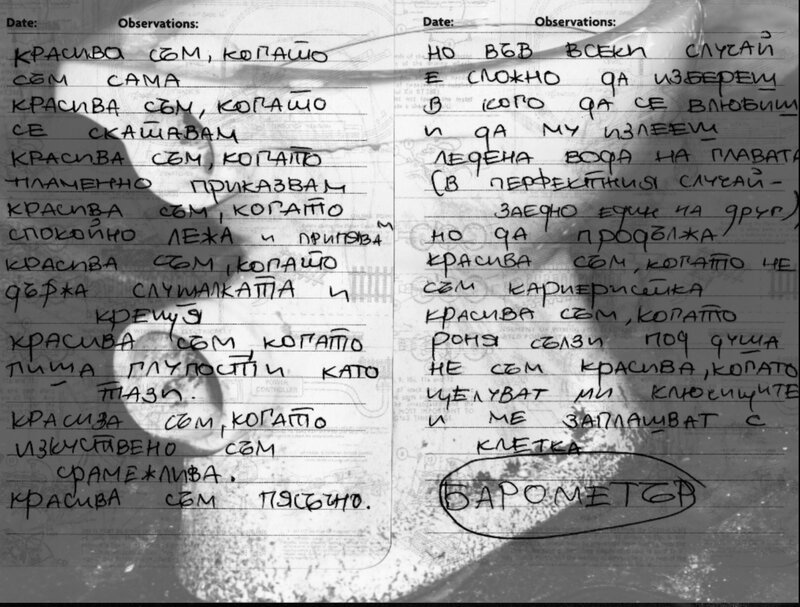 Date: Observations:
КРАСИВА СЪМ, КОГАТО
СЪМ САМА
КРАСИВА СЪМ, КОГАТО
СЕ СКАТАВАМ
КРАСИВА СЪМ, КОГАТО
ПЛАМЕННО ПРИКАЗВАМ
КРАСИВА СЪМ, КОГАТО
СПОКОЙНО ЛЕЖА И ПРИПЯВАМ
КРАСИВА СЪМ, КОГАТО
ДЪРЖА СЛУШАЛКАТА И
КРЕЩЯ
КРАСИВА СЪМ, КОГАТО
ПИША ГЛУПОСТИ КАТО
ТАЗИ.
КРАСИВА СЪМ, КОГАТО
ИЗКУСТВЕНО СЪМ
СРАМЕЖЛИВА.
КРАСИВА СЪМ ПЯСЪЧНО.
Date: Observations:
НО ВЪВ ВСЕКИ СЛУЧАЙ
Е СЛОЖНО ДА ИЗБЕРЕШ
В КОГО ДА СЕ ВЛЮБИШ
И ДА МУ ИЗЛЕЕШ
ЛЕДЕНА ВОДА НА ГЛАВАТА
(В ПЕРФЕКТНИЯ СЛУЧАЙ –
ЗАЕДНО ЕДИН НА ДРУГ)
НО ДА ПРОДЪЛЖА
КРАСИВА СЪМ, КОГАТО НЕ
СЪМ КАРИЕРИСТКА
КРАСИВА СЪМ, КОГАТО
РОНЯ СЪЛЗИ ПОД ДУША
НЕ СЪМ КРАСИВА, КОГАТО
ЦЕЛУВАТ МИ КЛЮЧИЦИТЕ
И МЕ ЗАПЛАШВАТ С
КЛЕТКА
БАРОМЕТЪР